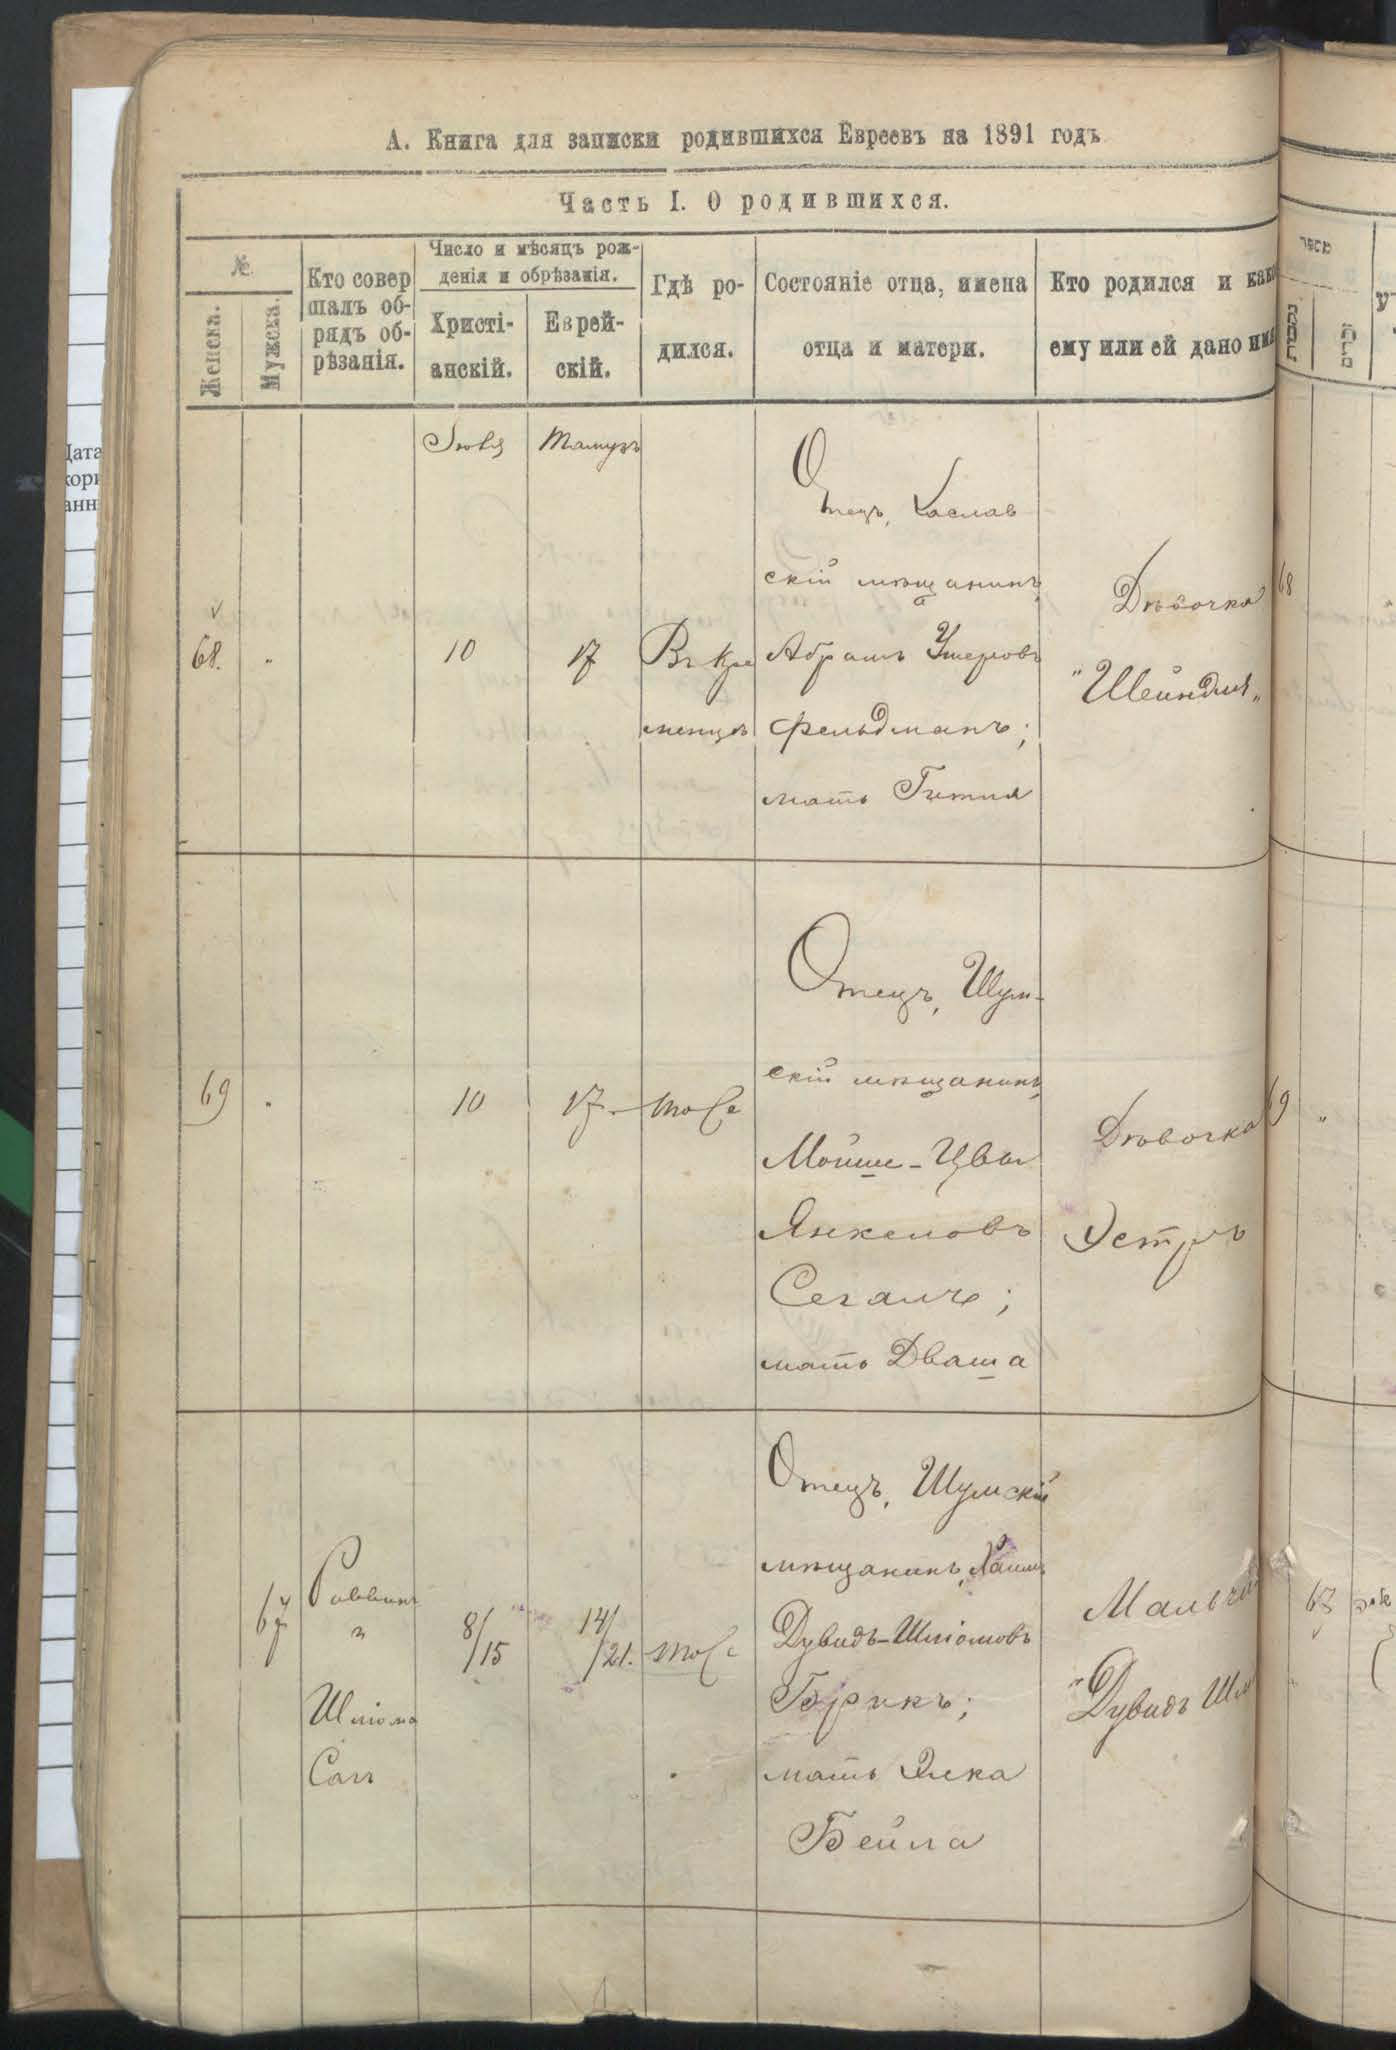 А. Книга для записки родившихся Евреевъ на 1891 годъ
Часть I. О родившихся.
№.
Женска.
Мужска.
Кто совер
шалъ об-
рядъ об-
рѣзанія.
Число и мѣсяцъ рож-
денія и обрѣзанія.
Христі-
анскій.
Еврей-
скій.
Гдѣ ро-
дился.
Состояніе отца, имена
отца и матери.
Кто родился и како
ему или ей дано имя
מספר
נקבות
זכרים
Дата
Іюля
Тамузъ
68.
10
17
Въ Кре
менцѣ
Отецъ,
скій мѣщанинъ,
Абрамъ
Фельдманъ;
мать Гитля
Дѣвочка
"Шейндля"
68
69
10
17
тоже
Отецъ, Шум-
скій мѣщанинъ,
Мойше-Цвы
Янкеловъ
Сегалъ;
мать Дваша
Дѣвочка
Эстръ
69
67
Раввинъ
Шліома
8/15
14/21.
тоже
Отецъ, Шумскій
мѣщанинъ, Хаимъ
Дувидъ-Шліомовъ
Брикъ;
мать Элка
Бейла
Мальчи
"Дувидъ Шл
67